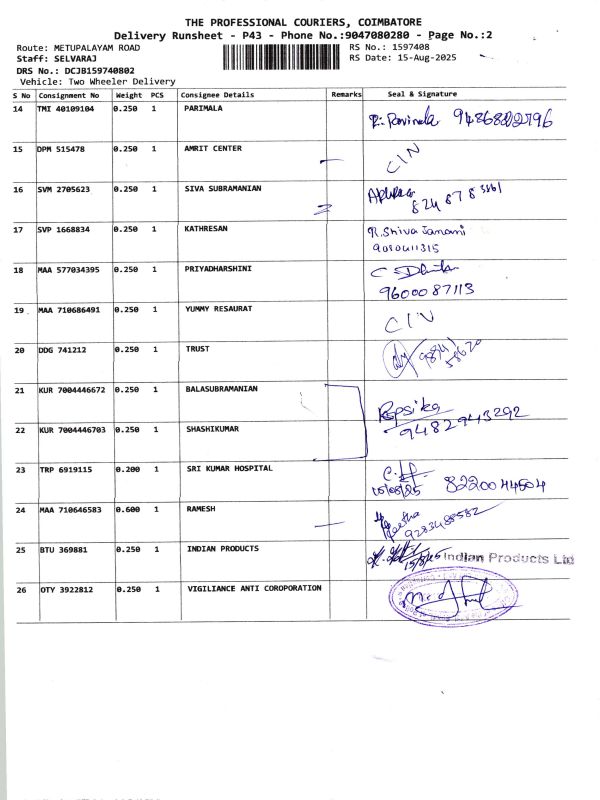 THE PROFESSIONAL COURIERS, COIMBATORE
Delivery Runsheet - P43 - Phone No.:9047080280 - Page No.:2
Route: METUPALAYAM ROAD
RS No.: 1597408
Staff: SELVARAJ
RS Date: 15-Aug-2025
DRS No.: DCJB159740802
Vehicle: Two Wheeler Delivery
S No Consignment No Weight PCS Consignee Details Remarks Seal & Signature
14 TMI 40109104 0.250 1 PARIMALA
15 DPM 515478 0.250 1 AMRIT CENTER CIN
16 SVM 2705623 0.250 1 SIVA SUBRAMANIAN
17 SVP 1668834 0.250 1 KATHRESAN R.Shiva Janani
18 MAA 577034395 0.250 1 PRIYADHARSHINI
9600087113
19 MAA 710686491 0.250 1 YUMMY RESAURAT CIN
20 DDG 741212 0.250 1 TRUST
21 KUR 7004446672 0.250 1 BALASUBRAMANIAN
22 KUR 7004446703 0.250 1 SHASHIKUMAR 9482943292
23 TRP 6919115 0.200 1 SRI KUMAR HOSPITAL
15/08/25 8220044504
24 MAA 710646583 0.600 1 RAMESH
25 BTU 369881 0.250 1 INDIAN PRODUCTS 15/8/25 Indian Products Ltd
26 OTY 3922812 0.250 1 VIGILIANCE ANTI COROPORATION